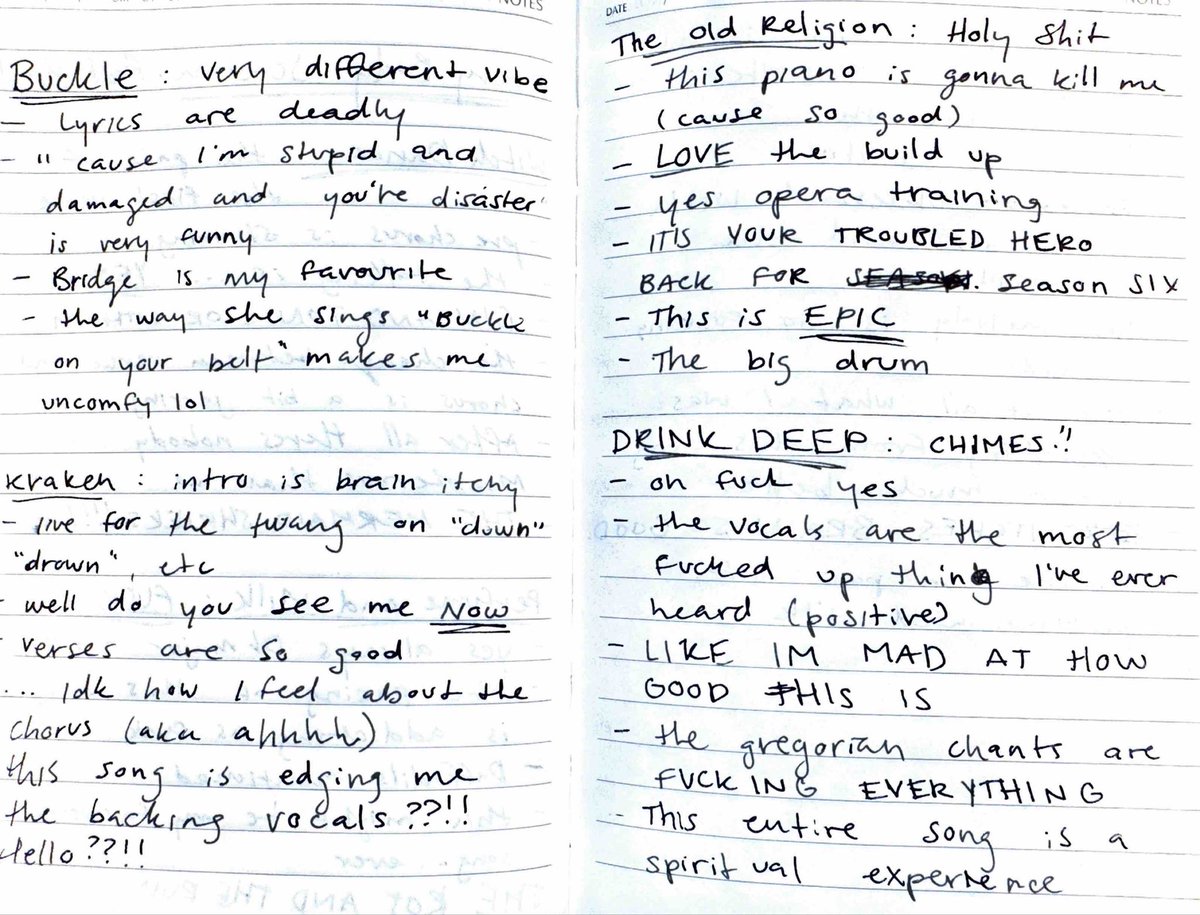 NOTES
Buckle : very different vibe
- Lyrics are deadly
- "cause I'm stupid and
damaged and you're disaster'
is very funny
- Bridge is my favourite
- the way she sings "Buckle
on your belt" makes me
uncomfy lol
Kraken : intro is brain itchy
- live for the twang on "down"
"drown", etc
- well do you see me NOW
- verses are so good
... Idk how I feel about the
chorus (aka ahhhh)
this song is edging me
the backing vocals ??!!
Hello ??!!
DATE
NOTES
The Old Religion : Holy Shit
- this piano is gonna kill me
(cause so good)
- LOVE the build up
- yes opera training
- ITS YOUR TROUBLED HERO
BACK FOR season SIX
- This is EPIC
- The big drum
DRINK DEEP : CHIMES!!
- oh fuck yes
- the vocals are the most
fucked up thing I've ever
heard (positive)
- LIKE IM MAD AT HOW
GOOD THIS IS
- the gregorian chants are
FUCKING EVERYTHING
- This entire song is a
spiritual experience